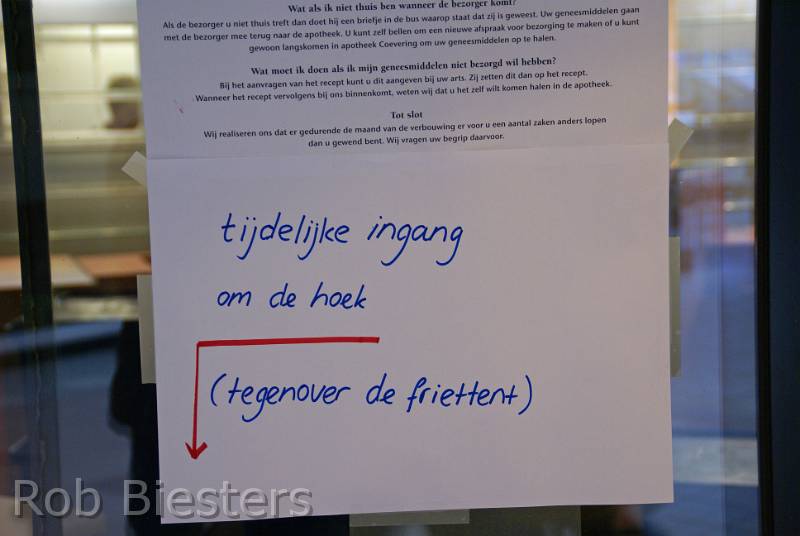 Wat als ik niet thuis ben wanneer de bezorger komt?
Als de bezorger u niet thuis treft dan doet hij een briefje in de bus waarop staat dat zij is geweest. Uw geneesmiddelen gaan
met de bezorger mee terug naar de apotheek. U kunt zelf bellen om een nieuwe afspraak voor bezorging te maken of u kunt
gewoon langskomen in apotheek Coevering om uw geneesmiddelen op te halen.
Wat moet ik doen als ik mijn geneesmiddelen niet bezorgd wil hebben?
Bij het aanvragen van het recept kunt u dit aangeven bij uw arts. Zij zetten dit dan op het recept.
Wanneer het recept vervolgens bij ons binnenkomt, weten wij dat u het zelf wilt komen halen in de apotheek.
Tot slot
Wij realiseren ons dat er gedurende de maand van de verbouwing er voor u een aantal zaken anders lopen
dan u gewend bent. Wij vragen uw begrip daarvoor.
tijdelijke ingang
om de hoek
(tegenover de friettent)
Rob Biesters